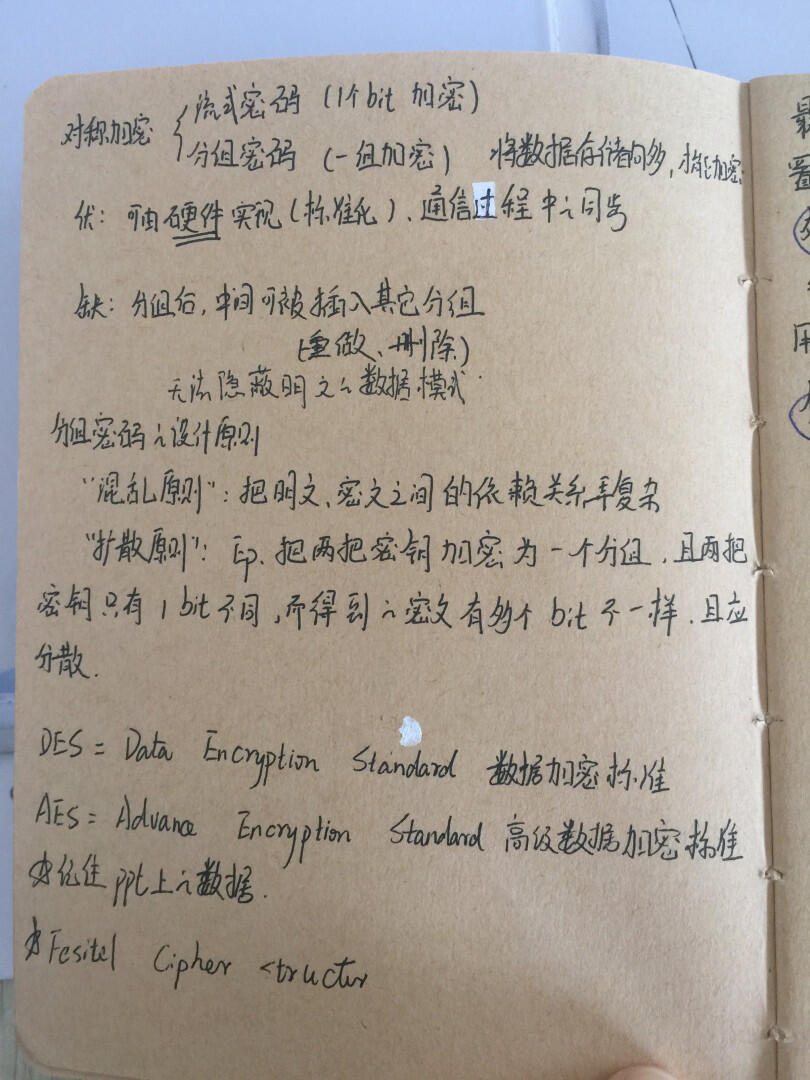 对称加密 { 流式密码 (1个bit 加密)
分组密码 (一组加密) 将数据存储向多,才能加密
优: 可由硬件实现(标准化)、通信过程中之同步
缺: 分组后,中间可被插入其它分组
(重做、删除)
无法隐蔽明文之数据模式.
分组密码之设计原则
"混乱原则": 把明文、密文之间的依赖关系弄复杂
"扩散原则": Ep. 把两把密钥加密为一个分组,且两把
密钥只有 1 bit 不同,而得到之密文有多个 bit 不一样.且应
分散.
DES = Data Encryption Standard 数据加密标准
AES = Advance Encryption Standard 高级数据加密标准
☆记住ppt上之数据.
☆Fesitel Cipher structur
最
置
用